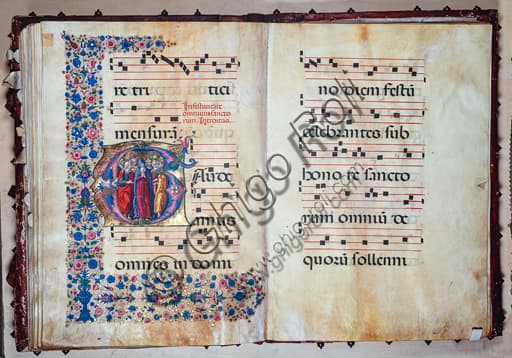 re tri tici
In festivitate
omnium sancto
rum. Introitus.
mensurā
GAude
amus
omnes in domi
no diem festū
celebrantes sub
hono re sancto
rum omniū de
quorū sollenni
Ghigo Roli
www.ghigoroli.com